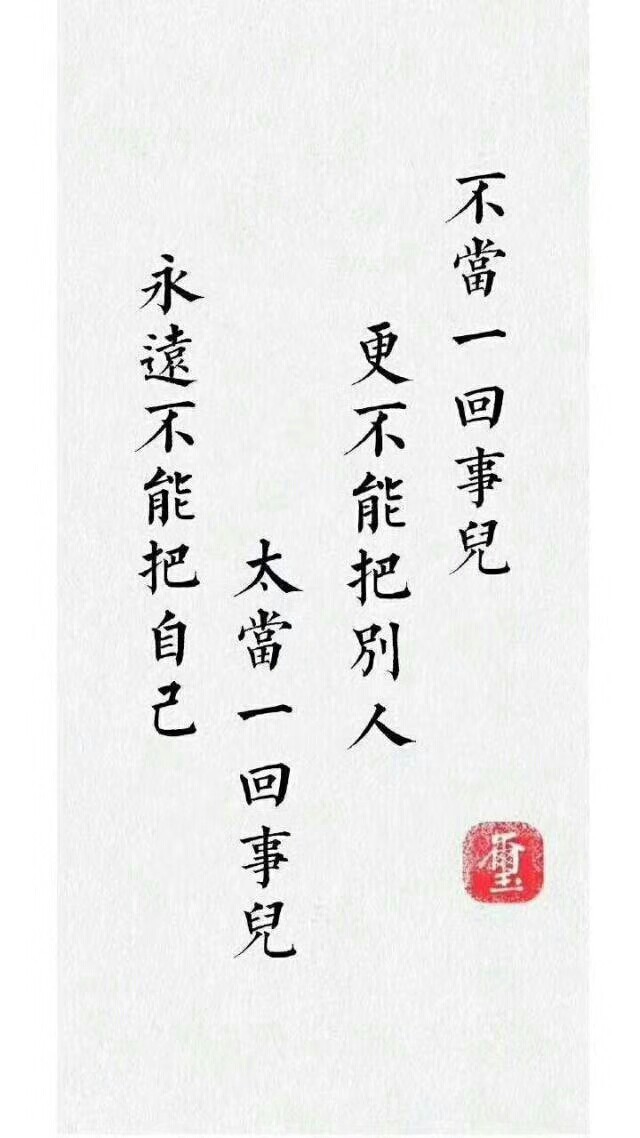 永遠不能把自己
太當一回事兒
更不能把別人
不當一回事兒